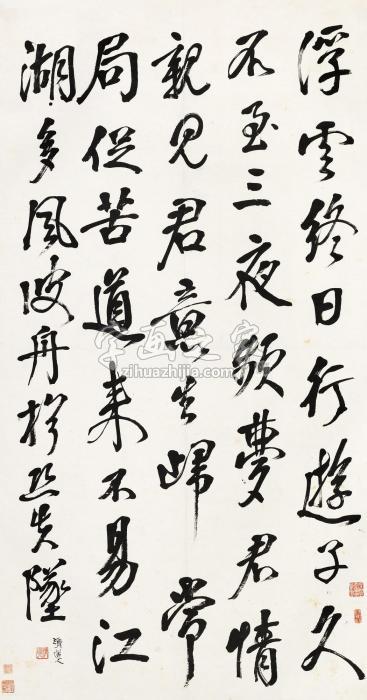 浮雲終日行遊子久
不至三夜頻夢君情
親見君意告歸常
局促苦道來不易江
湖多風波舟楫恐失墜
字画之家
zihuazhijia.com